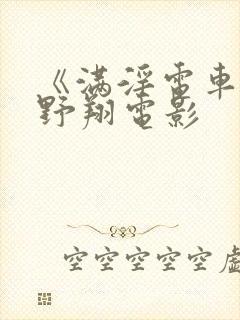 《满淫電車
野翔電影
空空空空空虚